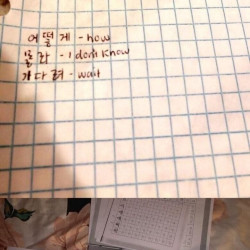 어떻게 - how
몰라 - I don't know
기다려 - wait